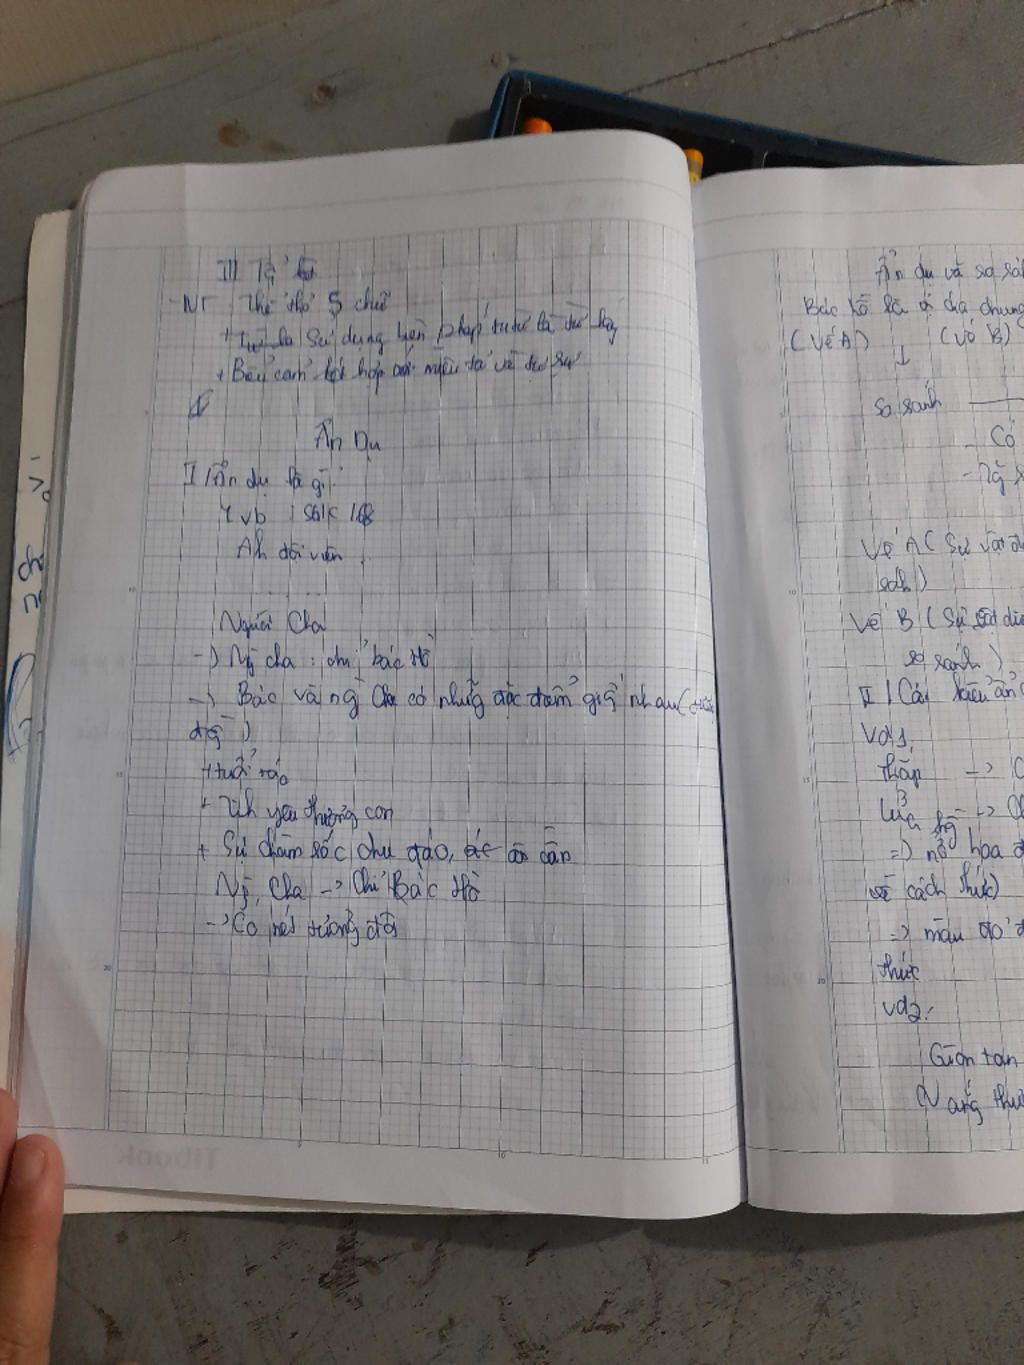 III
- NT : Thể thơ 5 chữ
+ Sử dụng biện pháp tu từ là từ láy
+ Biểu cảm kết hợp với miêu tả và tự sự
Ẩn Dụ
I / Ẩn dụ là gì?
1 vb : SGK / 68
Anh đội viên
.......
Người Cha
-> Ng cha : chỉ bác Hồ
-> Bác và ng Cha có những đặc điểm giố nhau (tương
đồ )
+ tuổi
+ Tình yêu thương con
+ Sự chăm sóc chu đáo, ân cần
Ng, Cha -> Chỉ Bác Hồ
-> Có nét tương đồ
Tibook
Ẩn dụ và so sá
Bác Hồ là
(Vế A) (Vế B)
↓
So sánh
- Có
Vế A ( Sự vật đ
sánh )
Vế B ( Sự vật dù
so sánh )
II / Các kiểu ẩn
Vd1,
thắp ->
Lửa hồ ->
=> nở hoa
về cách thức)
=> màu đỏ
thức
vd2:
Giòn tan
Nắng